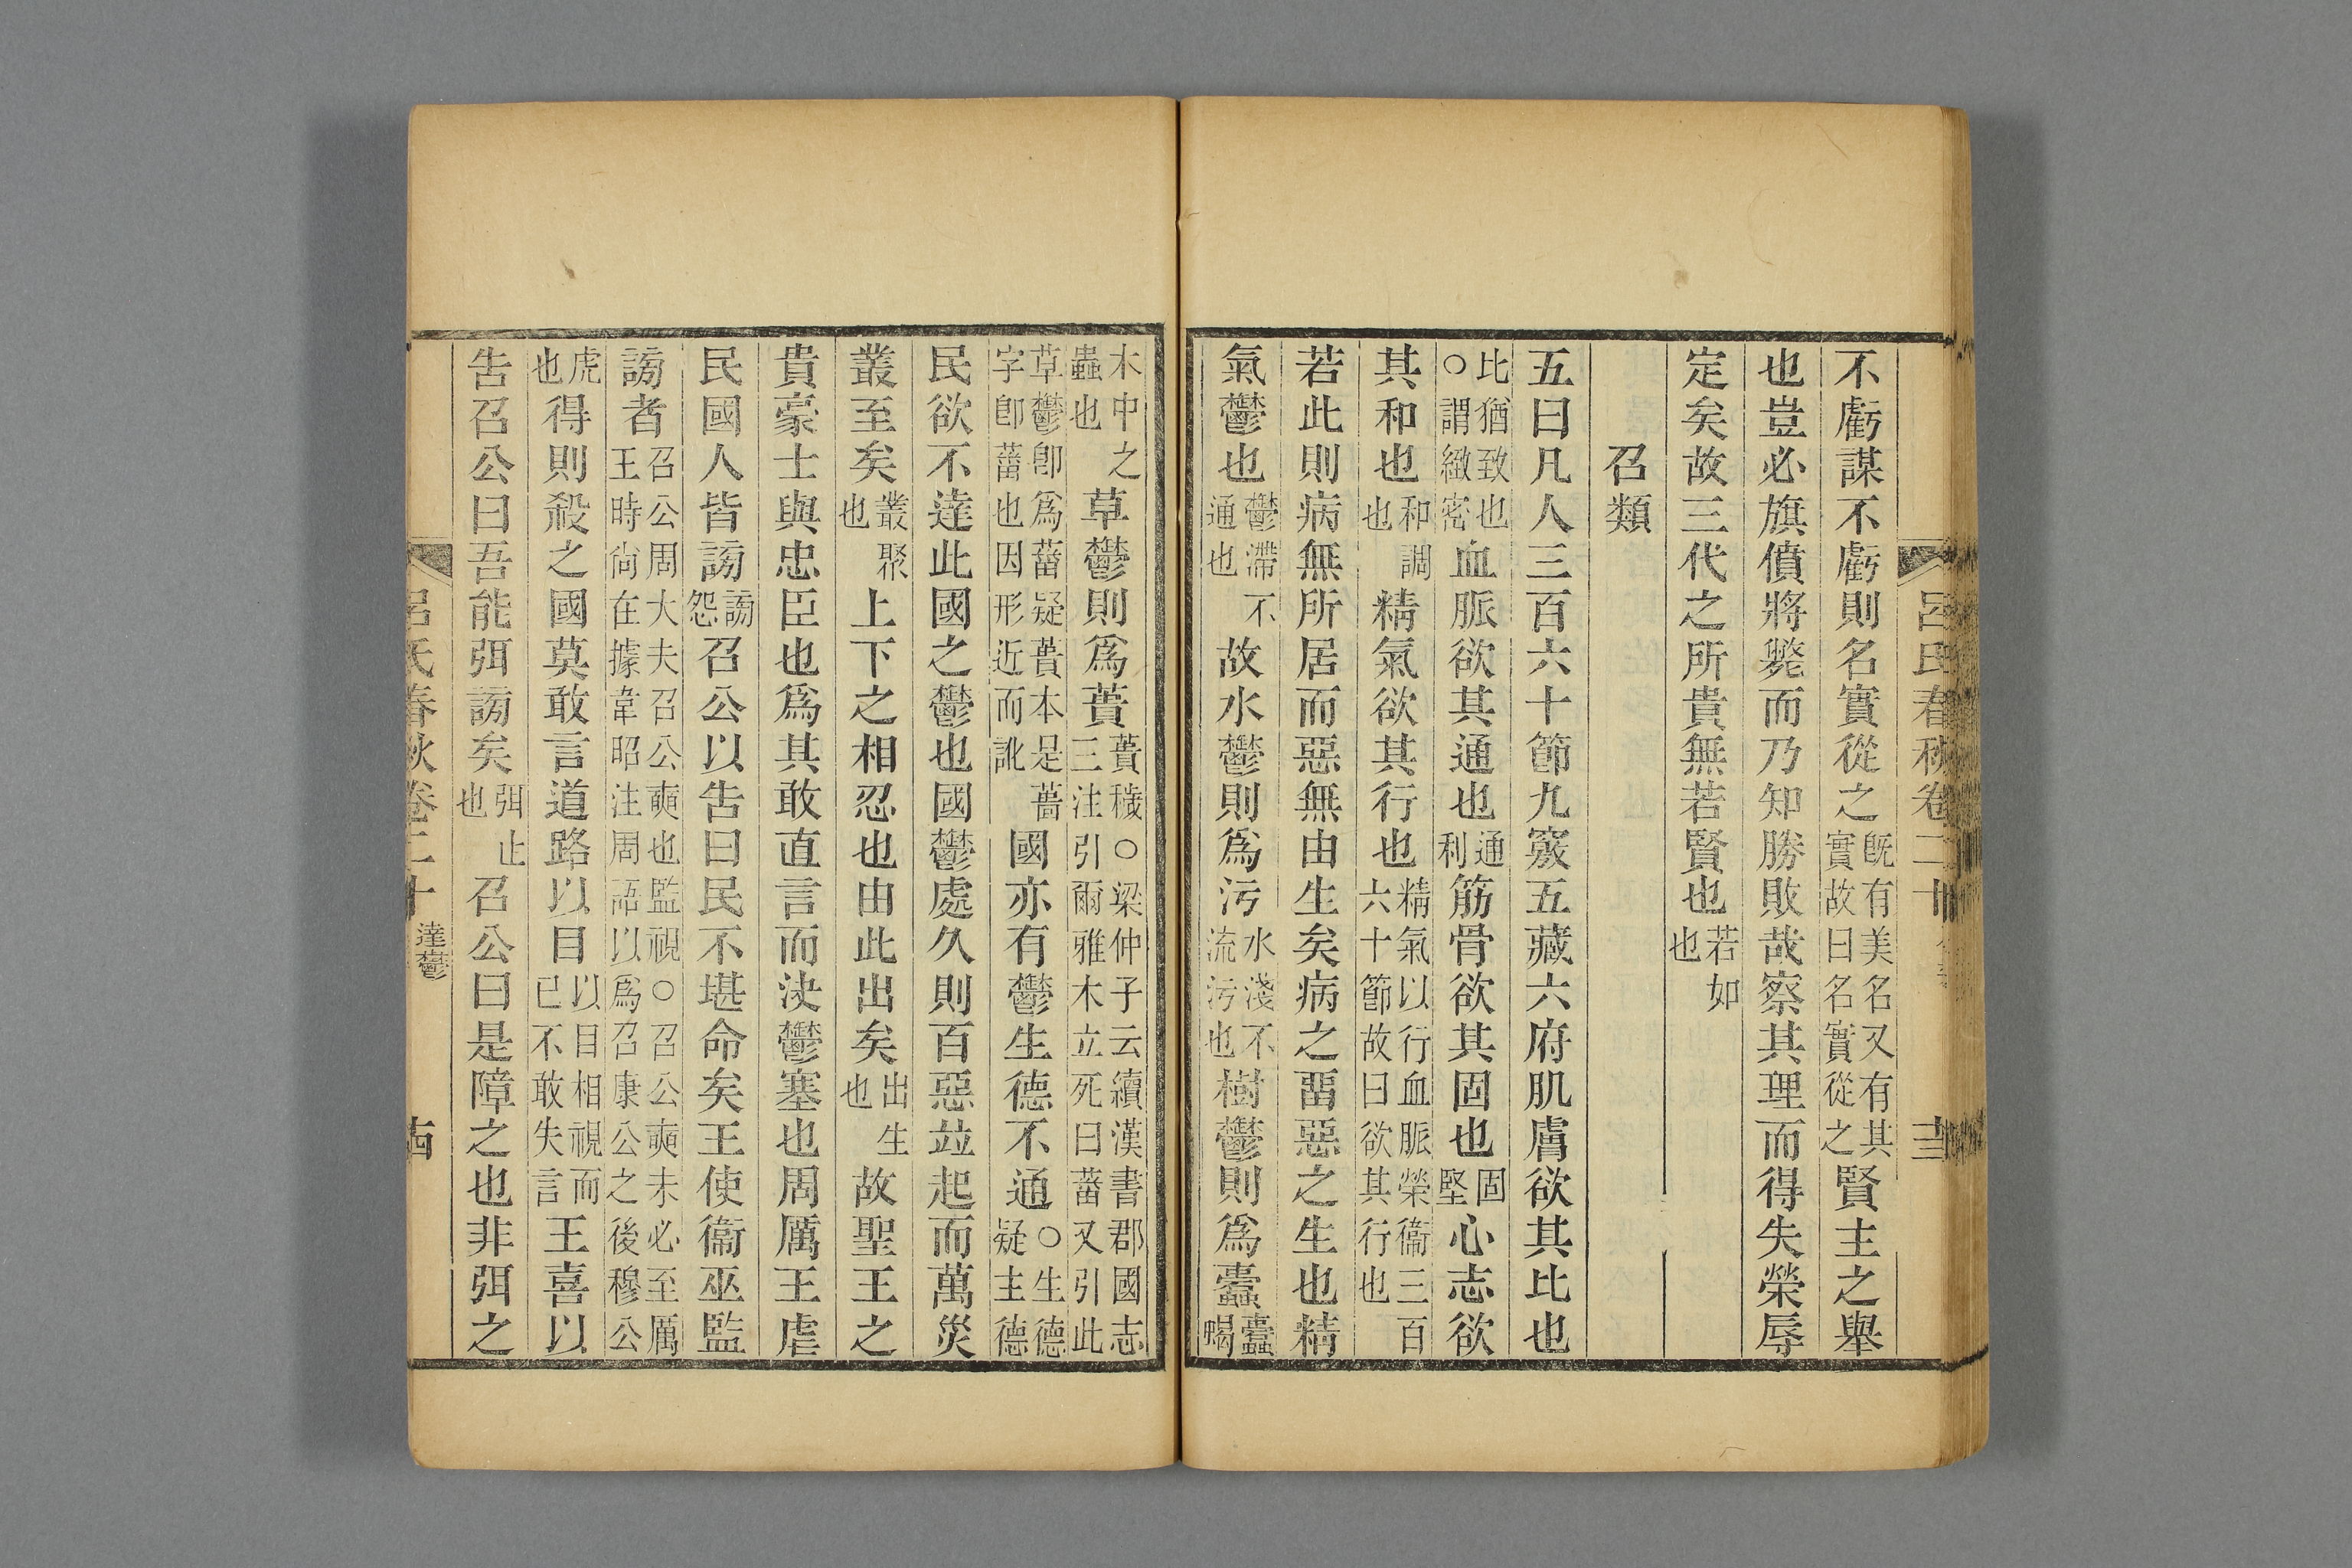 呂氏春秋卷二十 十三
不虧謀不虧則名實從之既有美名又有其實故曰名實從之賢主之舉
也豈必旗僨將斃而乃知勝敗哉察其理而得失榮辱
定矣故三代之所貴無若賢也若如也
召類
五曰凡人三百六十節九竅五藏六府肌膚欲其比也
比猶致也○謂緻密血脈欲其通也通利筋骨欲其固也固堅心志欲
其和也和調也精氣欲其行也精氣以行血脈榮衞三百六十節故曰欲其行也
若此則病無所居而惡無由生矣病之畱惡之生也精
氣鬱也鬱滯不通也故水鬱則爲污水淺不流污也樹鬱則爲蠹蠹蝎
木中之蟲也草鬱則爲蕢蕢穢○梁仲子云續漢書郡國志三注引爾雅木立死曰菑又引此
草鬱卽爲菑疑蕢本是菑字卽菑也因形近而訛國亦有鬱生德不通○生德疑主德
民欲不達此國之鬱也國鬱處久則百惡竝起而萬災
叢至矣叢聚也上下之相忍也由此出矣出生也故聖王之
貴豪士與忠臣也爲其敢直言而決鬱塞也周厲王虐
民國人皆謗謗怨召公以告曰民不堪命矣王使衞巫監
謗者召公周大夫召公奭也監視○召公奭未必至厲王時尙在據韋昭注周語以爲召康公之後穆公
虎也得則殺之國莫敢言道路以目以目相視而已不敢失言王喜以
告召公曰吾能弭謗矣弭止也召公曰是障之也非弭之
呂氏春秋卷二十 達鬱 十四